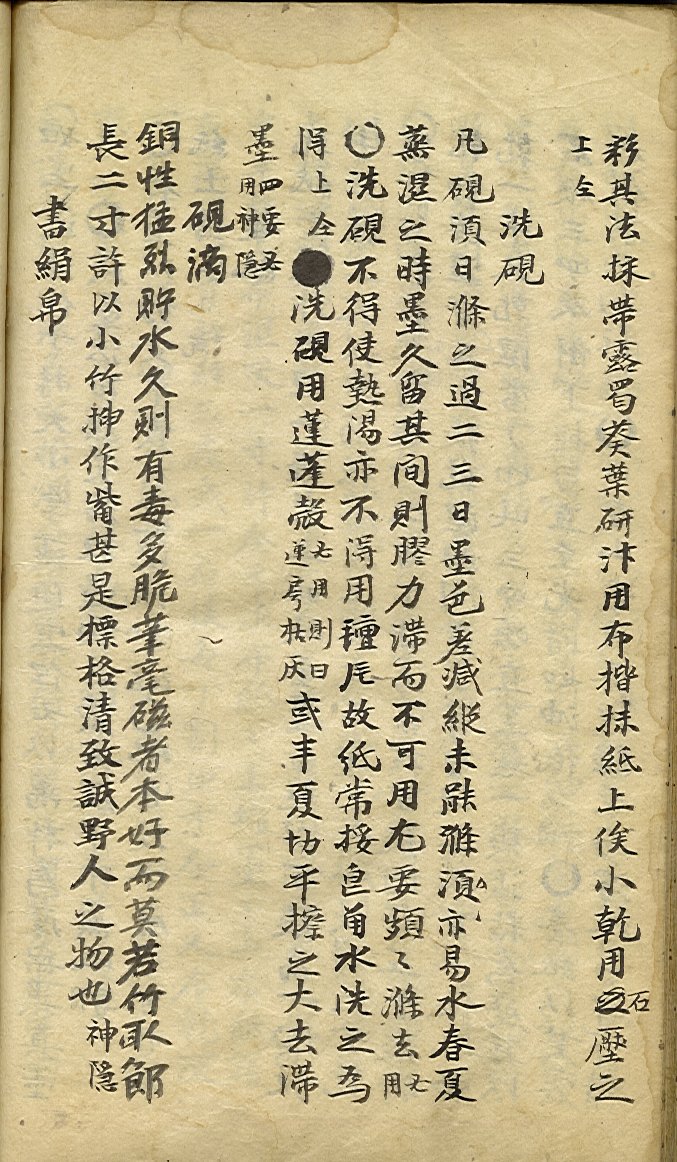 彩其法採帶露蜀葵葉研汁用布揩抹紙上俟小乾用石壓之
上仝
洗硯
凡硯須日滌之過二三日墨色差減縱未能滌須亦易水春夏
蒸濕之時墨久留其间則膠力滯而不可用尤要頻〻滌去 居用
○洗硯不得使熱湯亦不得用氊片故紙常按皀角水洗之爲
得上仝●洗硯用蓮蓬殼 居用則曰蓮房枯灰 或半夏切平擦之大去滯
墨 四要居用神隐
硯滴
銅性猛烈貯水久則有毒多脆筆毫磁者本好而莫若竹取節
長二寸許以小竹揷作觜甚是標格清致誠野人之物也 神隐
書絹帛